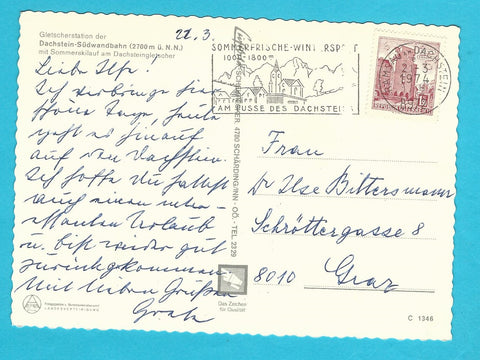 Gletscherstation der
Dachstein-Südwandbahn (2700 m ü. N. N.)
mit Sommerskilauf am Dachsteingletscher
22.3.
Liebe Ilse!
Ich verbringe hier
schöne Tage, heute
geht es hinauf
auf den Dachstein.
Ich hoffe Du hattest
auch einen netten
Urlaub
u. bist wieder gut
zurückgekommen
Mit lieben Grüßen
SOMMERFRISCHE-WINTERSPORT
1000-1800m
AM FUSSE DES DACHSTEIN
DACHSTEIN
1974
4780 SCHÄRDING/INN - OÖ. - TEL. 2329
Frau
Dr Ilse Bittersmann
Schröttergasse 8
8010 Graz
Das Zeichen
für Qualität
C 1346